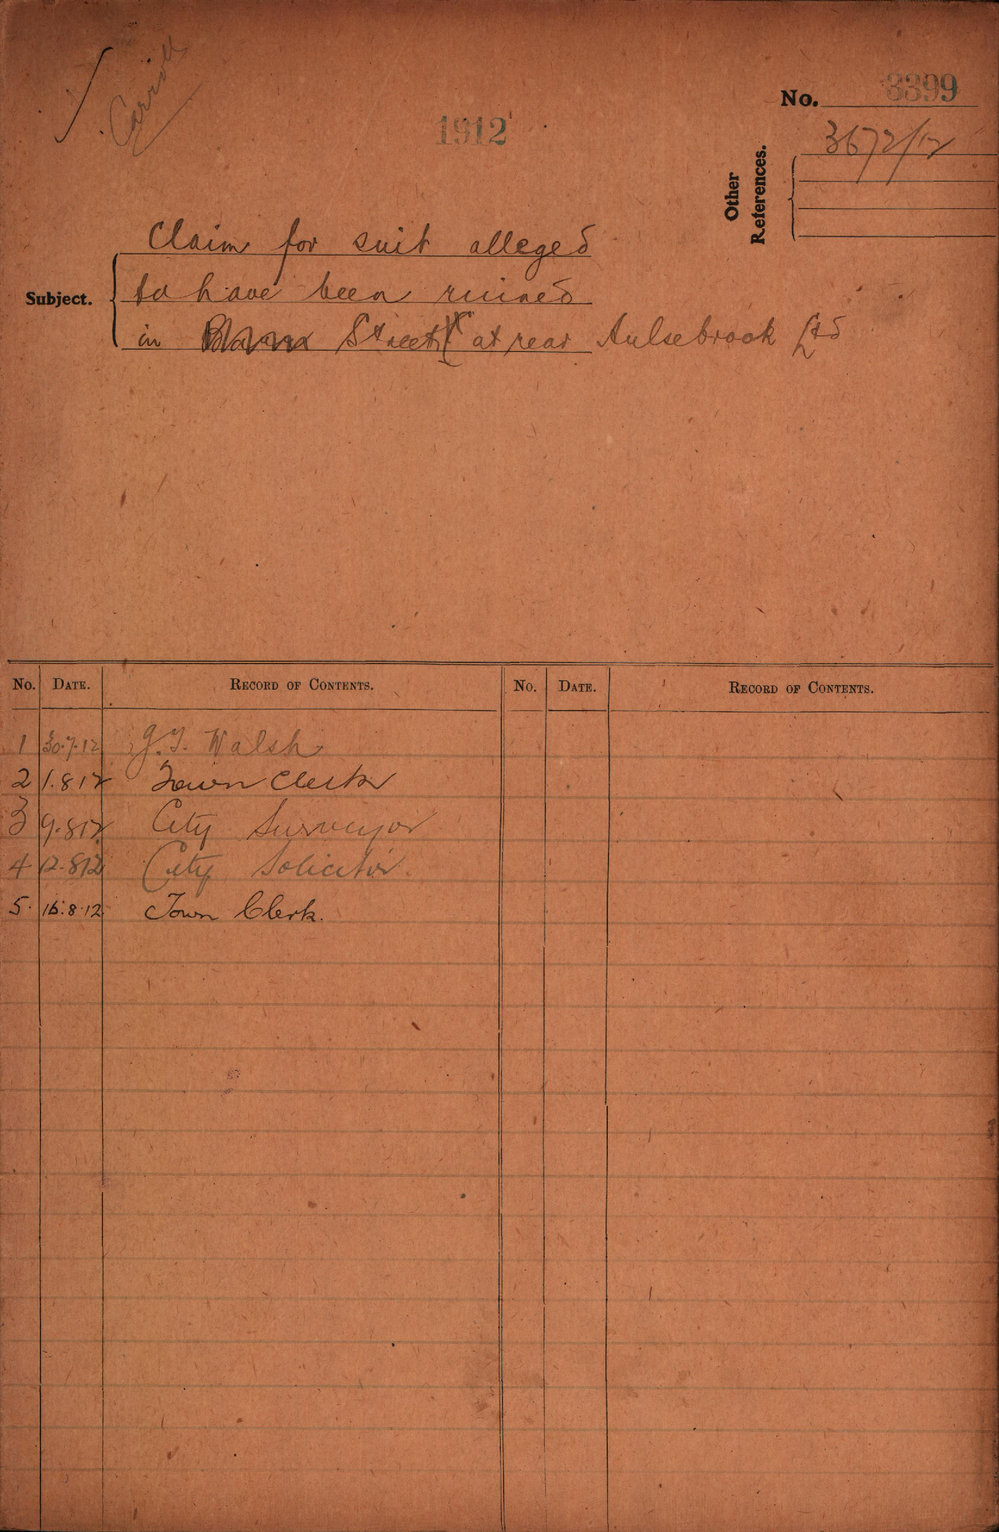 Carroll
1912
No. 3399
Other References.
3672/12
Subject.
Claim for suit alleged
to have been ruined
in Street at rear Aulsebrook Ltd
No. DATE. RECORD OF CONTENTS. No. DATE. RECORD OF CONTENTS.
1 30.7.12 J. T. Walsh
2 1.8.12 Town Clerk
3 9.8.12 City Surveyor
4 12.8.12 City Solicitor.
5. 15.8.12 Town Clerk.